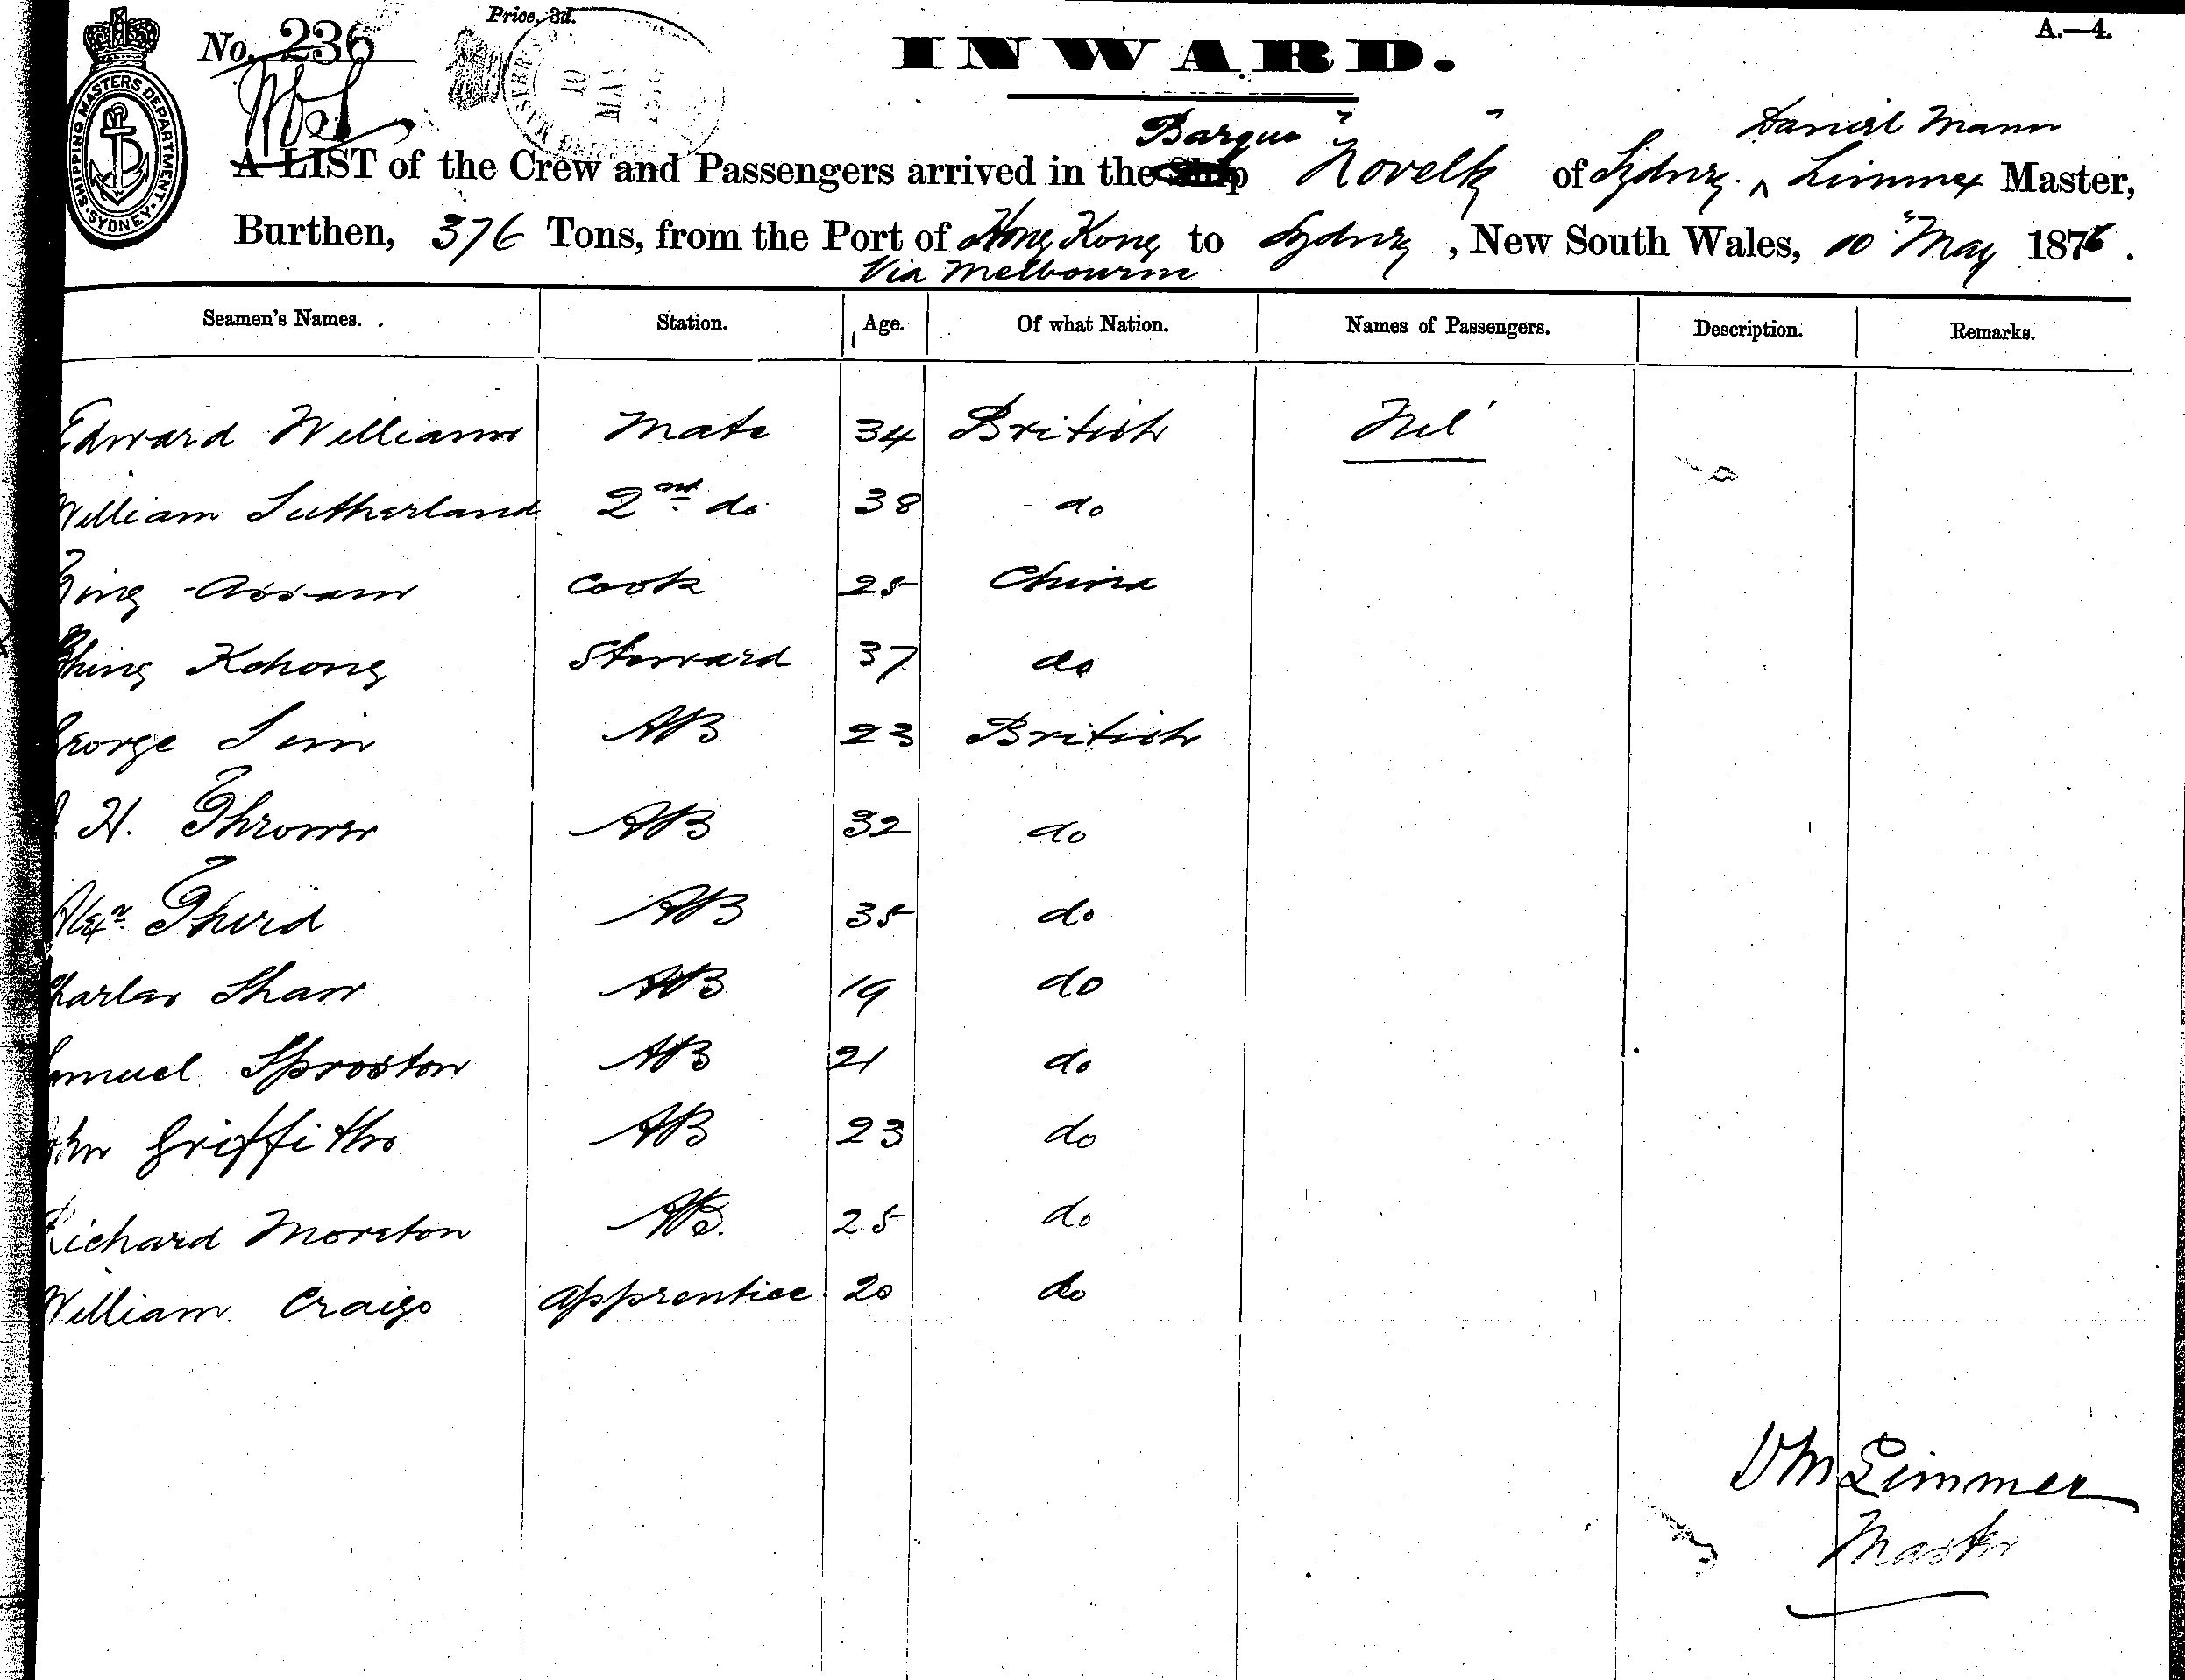 No. 236
Price, 3d.
INWARD.
A.—4.
SHIPPING MASTERS DEPARTMENT. SYDNEY
10 MAY
Barque Daniel Mann
A LIST of the Crew and Passengers arrived in the Ship "Novelty" of Sydney Limmer Master,
Burthen, 376 Tons, from the Port of Hong Kong to Sydney, New South Wales, 10 May 1876.
Via Melbourne
Seamen's Names. Station. Age. Of what Nation. Names of Passengers. Description. Remarks.
Edward Williams Mate 34 British Nil
William Sutherland 2nd do 38 do
Assam Cook 25 China
Kchong Steward 37 do
George Sim AB 23 British
H. Thrower AB 32 do
Alexr Third AB 35 do
Charles Shaw AB 19 do
Samuel Sproston AB 21 do
John Griffiths AB 23 do
Richard Moreton AB. 25 do
William Craigo apprentice 20 do
DM Limmer
Master